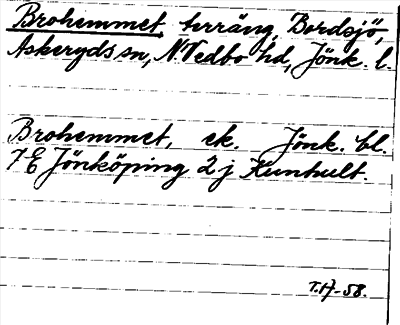 Brohemmet terräng, Bordsjö,
Askeryds sn, N. Vedbo hd, Jönk. l.
Brohemmet, ek. Jönk. bl.
7 E Jönköping 2 j Kunhult.
T.H-58.